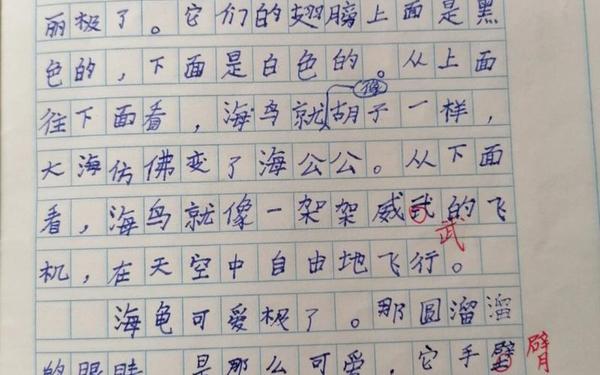 丽极了。它们的翅膀上面是黑
色的，下面是白色的。从上面
往下面看，海鸟就像胡子一样，
大海仿佛变了海公公。从下面
看，海鸟就像一架架威武的飞
机，在天空中自由地飞行。
武
海龟可爱极了。那圆溜溜
的眼睛，是那么可爹，它手臂
臂